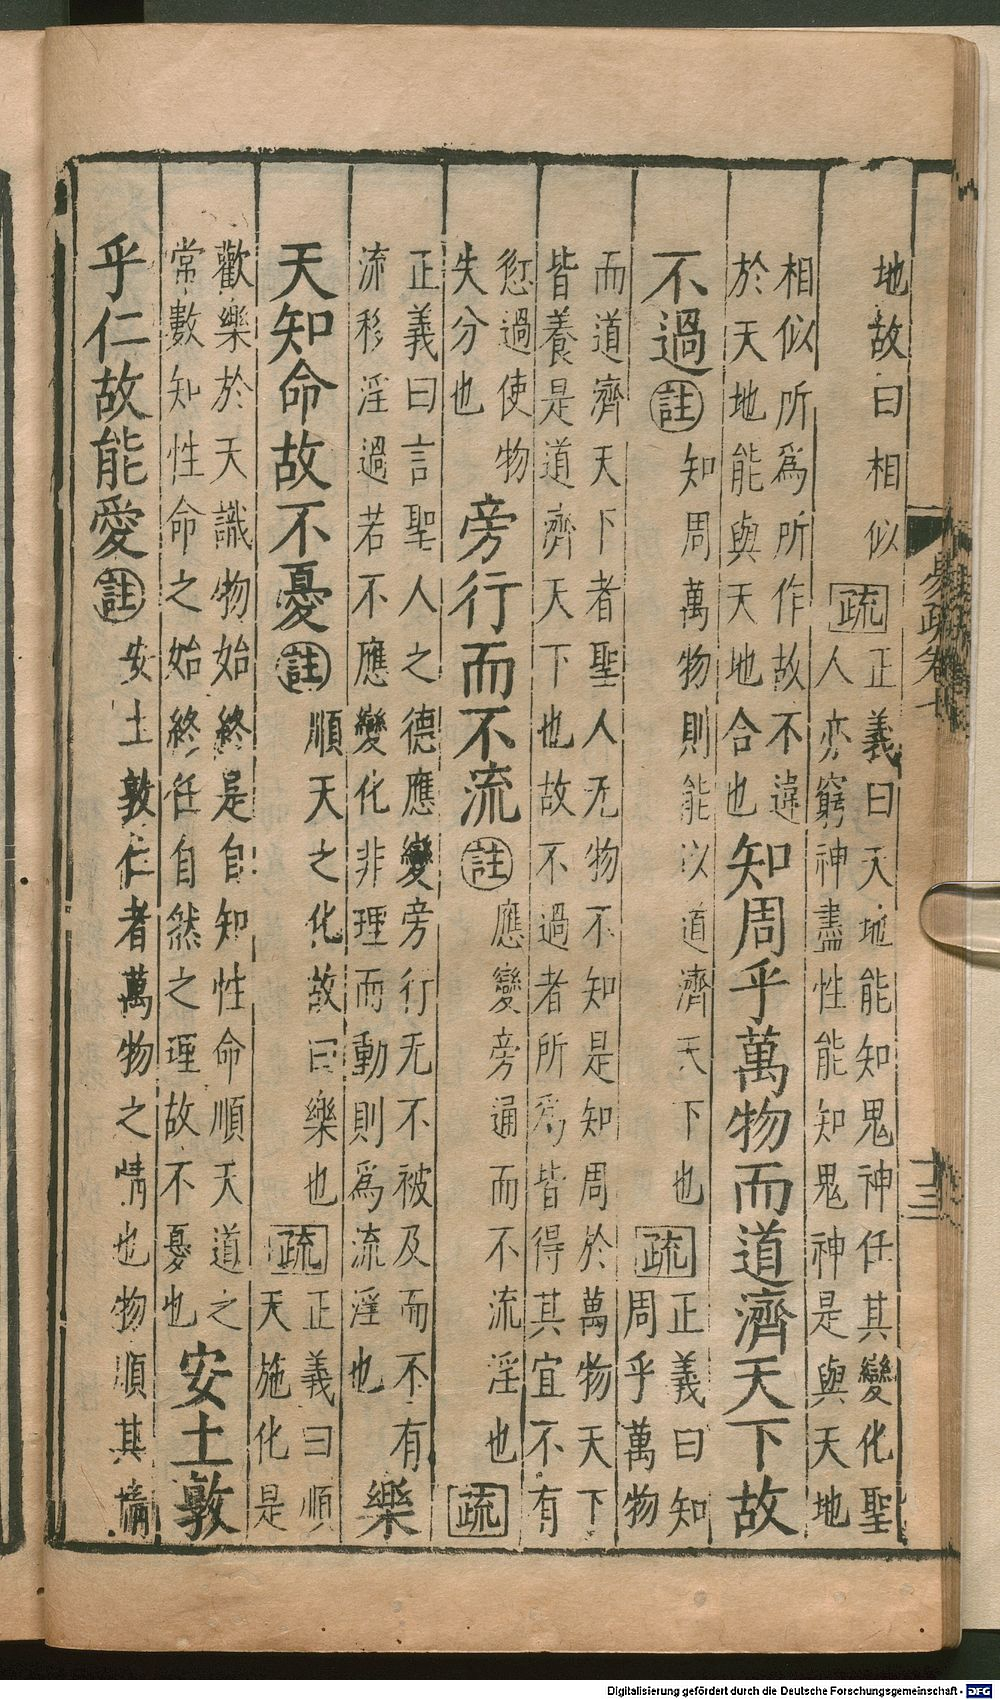 地故曰相似疏正義曰天地能知鬼神任其變化聖
人亦窮神盡性能知鬼神是與天地
相似所爲所作故不違
於天地能與天地合也知周乎萬物而道濟天下故
不過註知周萬物則能以道濟天下也疏正義曰知
周乎萬物
而道濟天下者聖人无物不知是知周於萬物天下
皆養是道濟天下也故不過者所爲皆得其宜不有
愆過使物
失分也旁行而不流註應變旁通而不流淫也疏
正義曰言聖人之德應變旁行无不被及而不有
流移淫過若不應變化非理而動則爲流淫也樂
天知命故不憂註順天之化故曰樂也疏正義曰順
天施化是
歡樂於天識物始終是自知性命順天道之
常數知性命之始終任自然之理故不憂也安土敦
乎仁故能愛註安土敦仁者萬物之情也物順其情
易疏卷十
十三
Digitalisierung gefördert durch die Deutsche Forschungsgemeinschaft - DFG